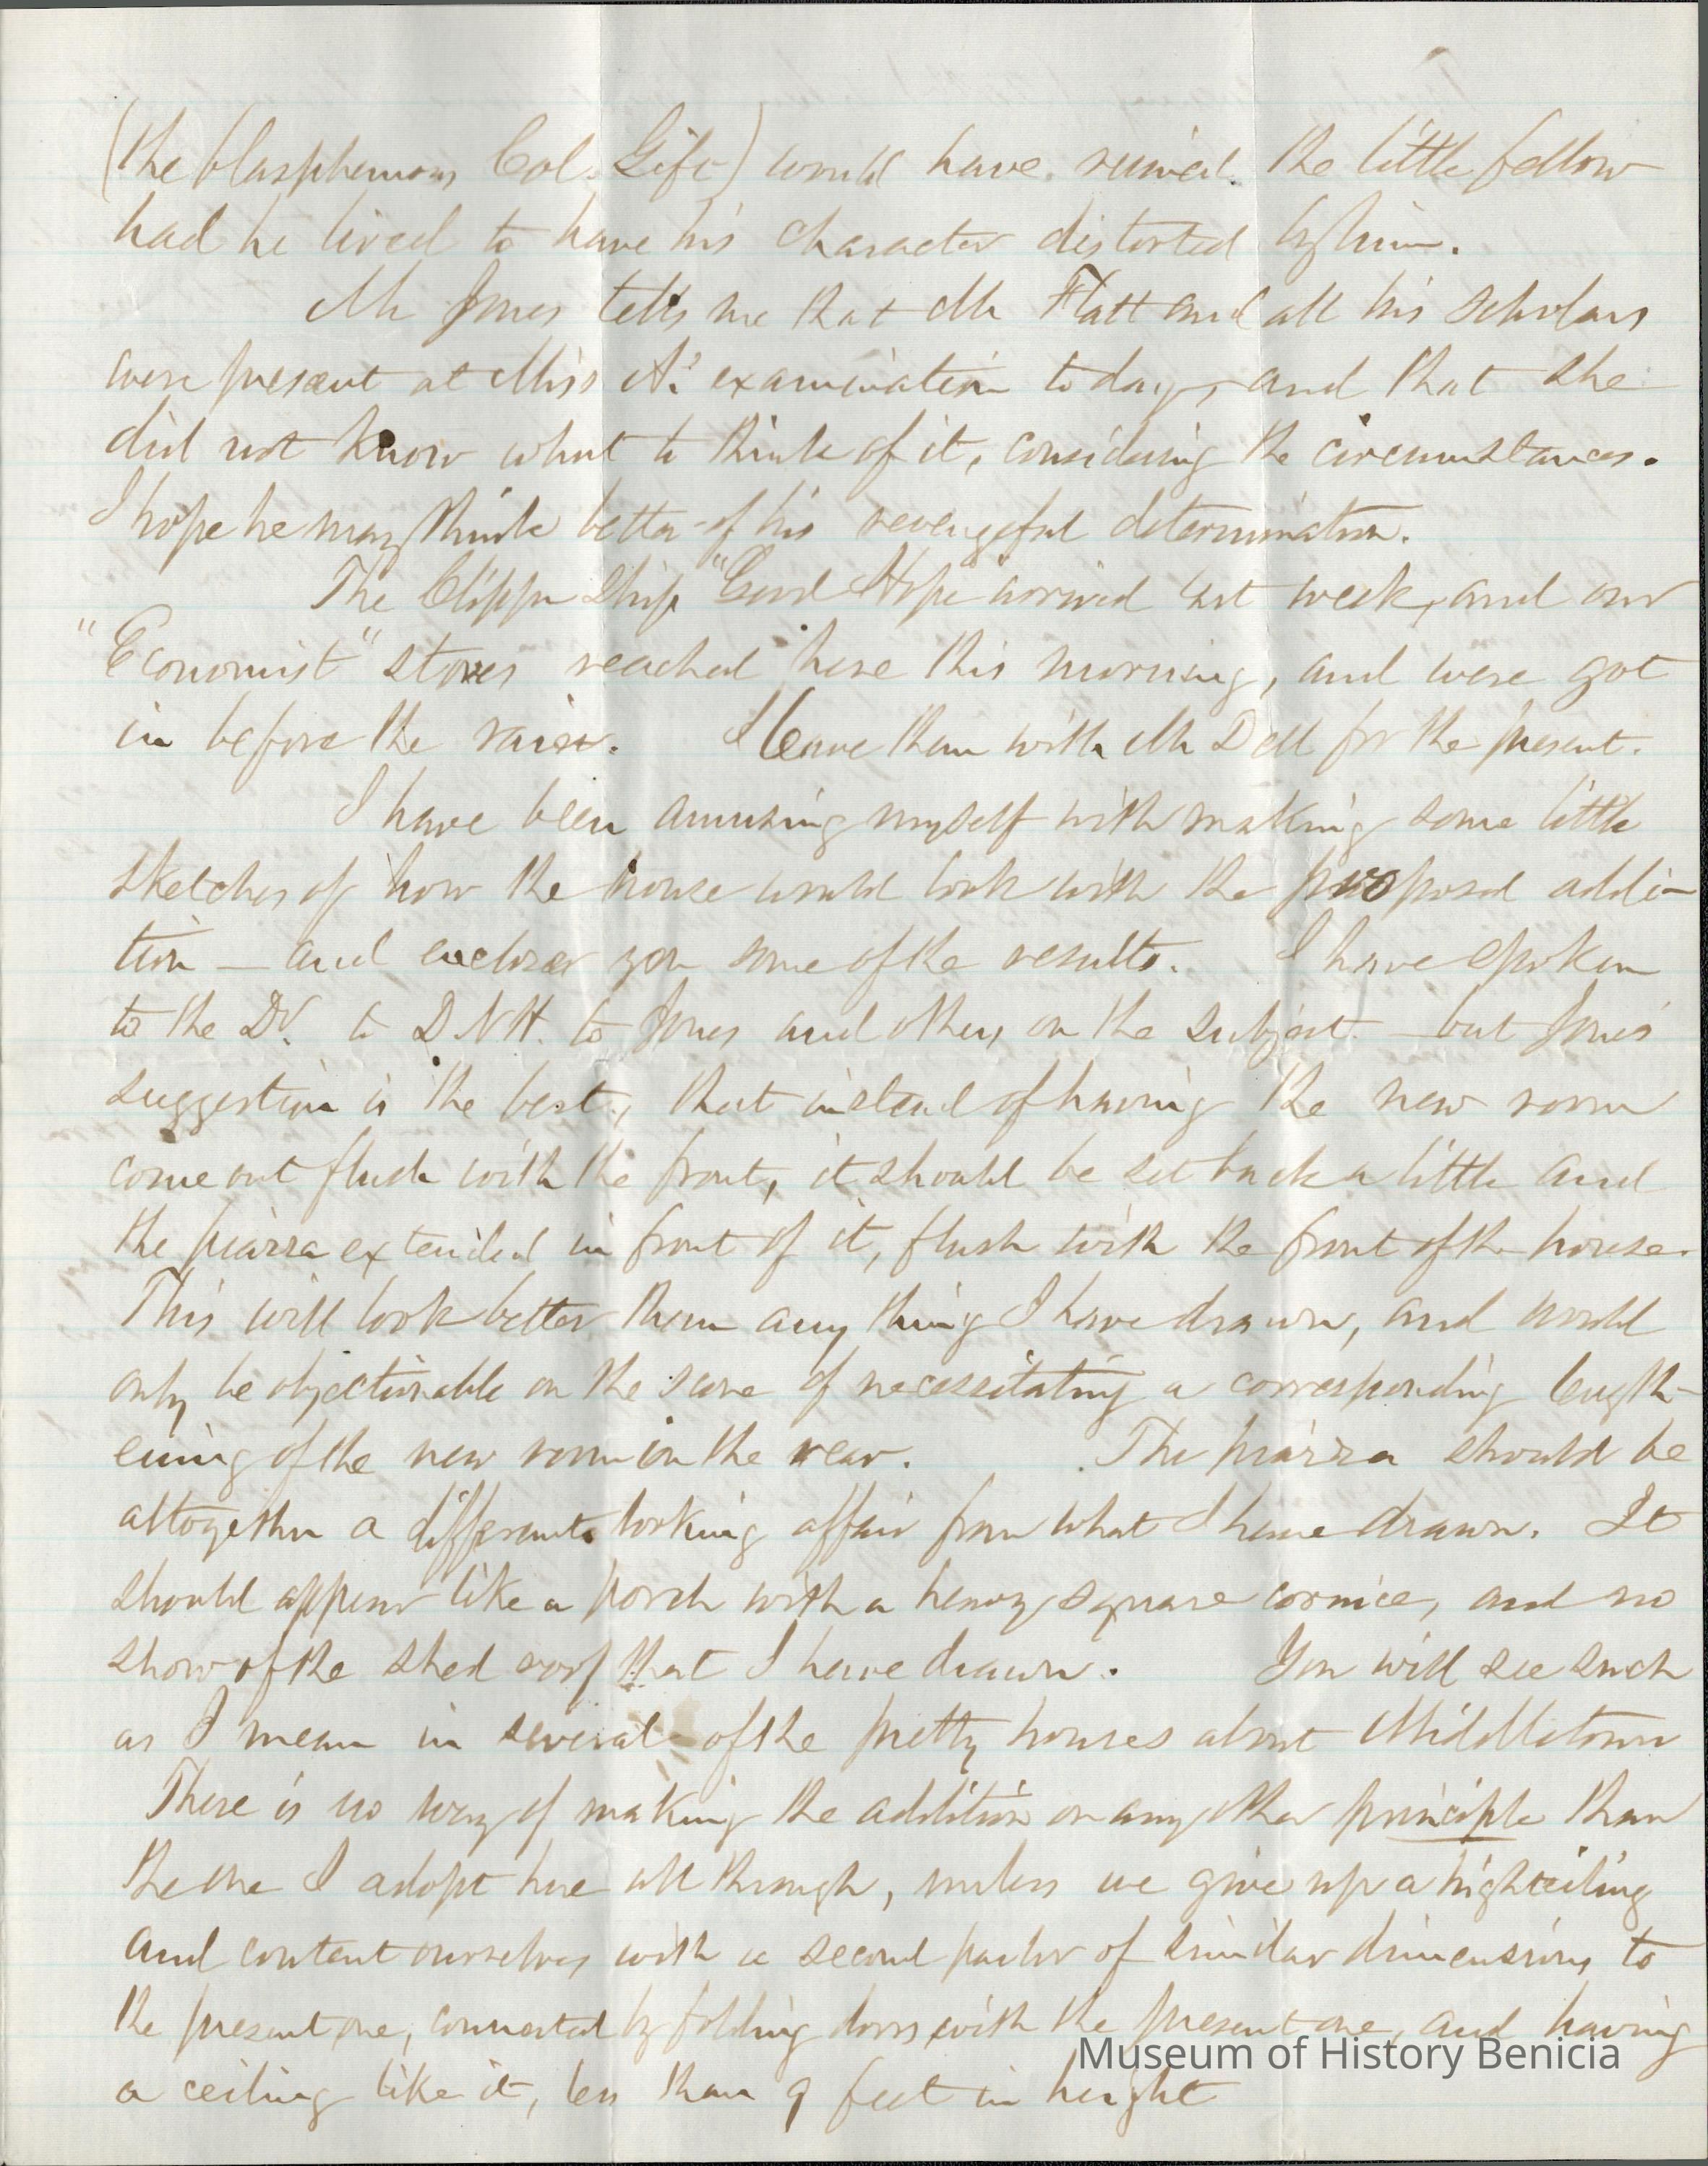 (the blasphemous Col. Gift) would have ruined the little fellow
had he lived to have his character distorted by him.
Mr Jones tells me that Mr Flatt and all his scholars
were present at Miss A's examination to day, and that she
did not know what to think of it, considering the circumstances.
I hope he may think better of his revengeful determination.
The Clipper Ship "Good Hope arrived last week, and our
"Economist" stoves reached here this morning, and were got
in before the rain. I leave them with Mr Dell for the present.
I have been amusing myself with making some little
sketches of how the house would look with the proposed addi-
tion — and enclose you some of the results. I have spoken
to the Dr. to D.N.H. to Jones and others on the subject — but Jones'
suggestion is the best, that instead of having the new room
come out flush with the front, it should be set back a little and
the piazza extended in front of it, flush with the front of the house.
This will look better than any thing I have drawn, and would
only be objectionable on the score of necessitating a corresponding length-
ening of the new room in the rear. The piazza should be
altogether a different looking affair from what I have drawn. It
should appear like a porch with a heavy square cornice, and no
show of the shed roof that I have drawn. You will see such
as I mean in several of the pretty houses about Middletown
There is no way of making the addition on any other principle than
the one I adopt here all through, unless we give up a high ceiling
and content ourselves with a second parlor of similar dimensions to
the present one, connected by folding doors with the present one, and having
a ceiling like it, less than 9 feet in height
Museum of History Benicia